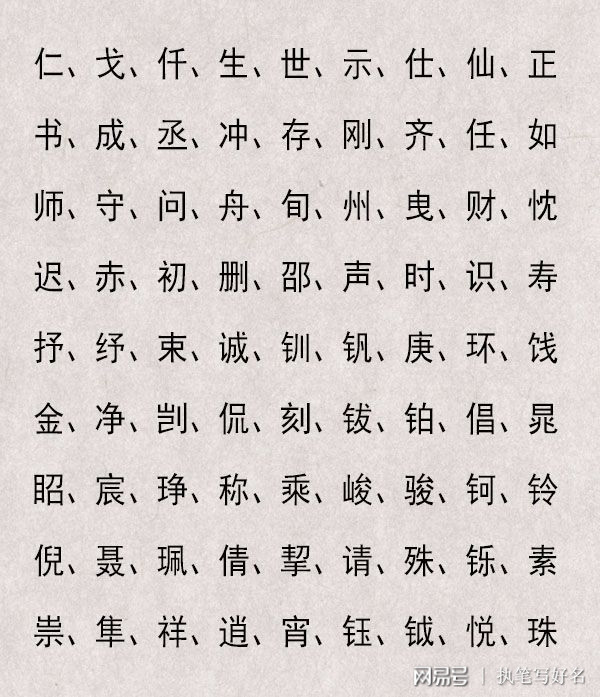 仁、戈、仟、生、世、示、仕、仙、正
书、成、丞、冲、存、刚、齐、任、如
师、守、问、舟、旬、州、曳、财、忱
迟、赤、初、删、邵、声、时、识、寿
抒、纾、束、诚、钏、钒、庚、环、饯
金、净、剀、侃、刻、钹、铂、倡、晁
眧、宸、琤、称、乘、峻、骏、钶、铃
倪、聂、珮、倩、挈、请、殊、铄、素
崇、隼、祥、逍、宵、钰、钺、悦、珠
网易号 | 执笔写好名